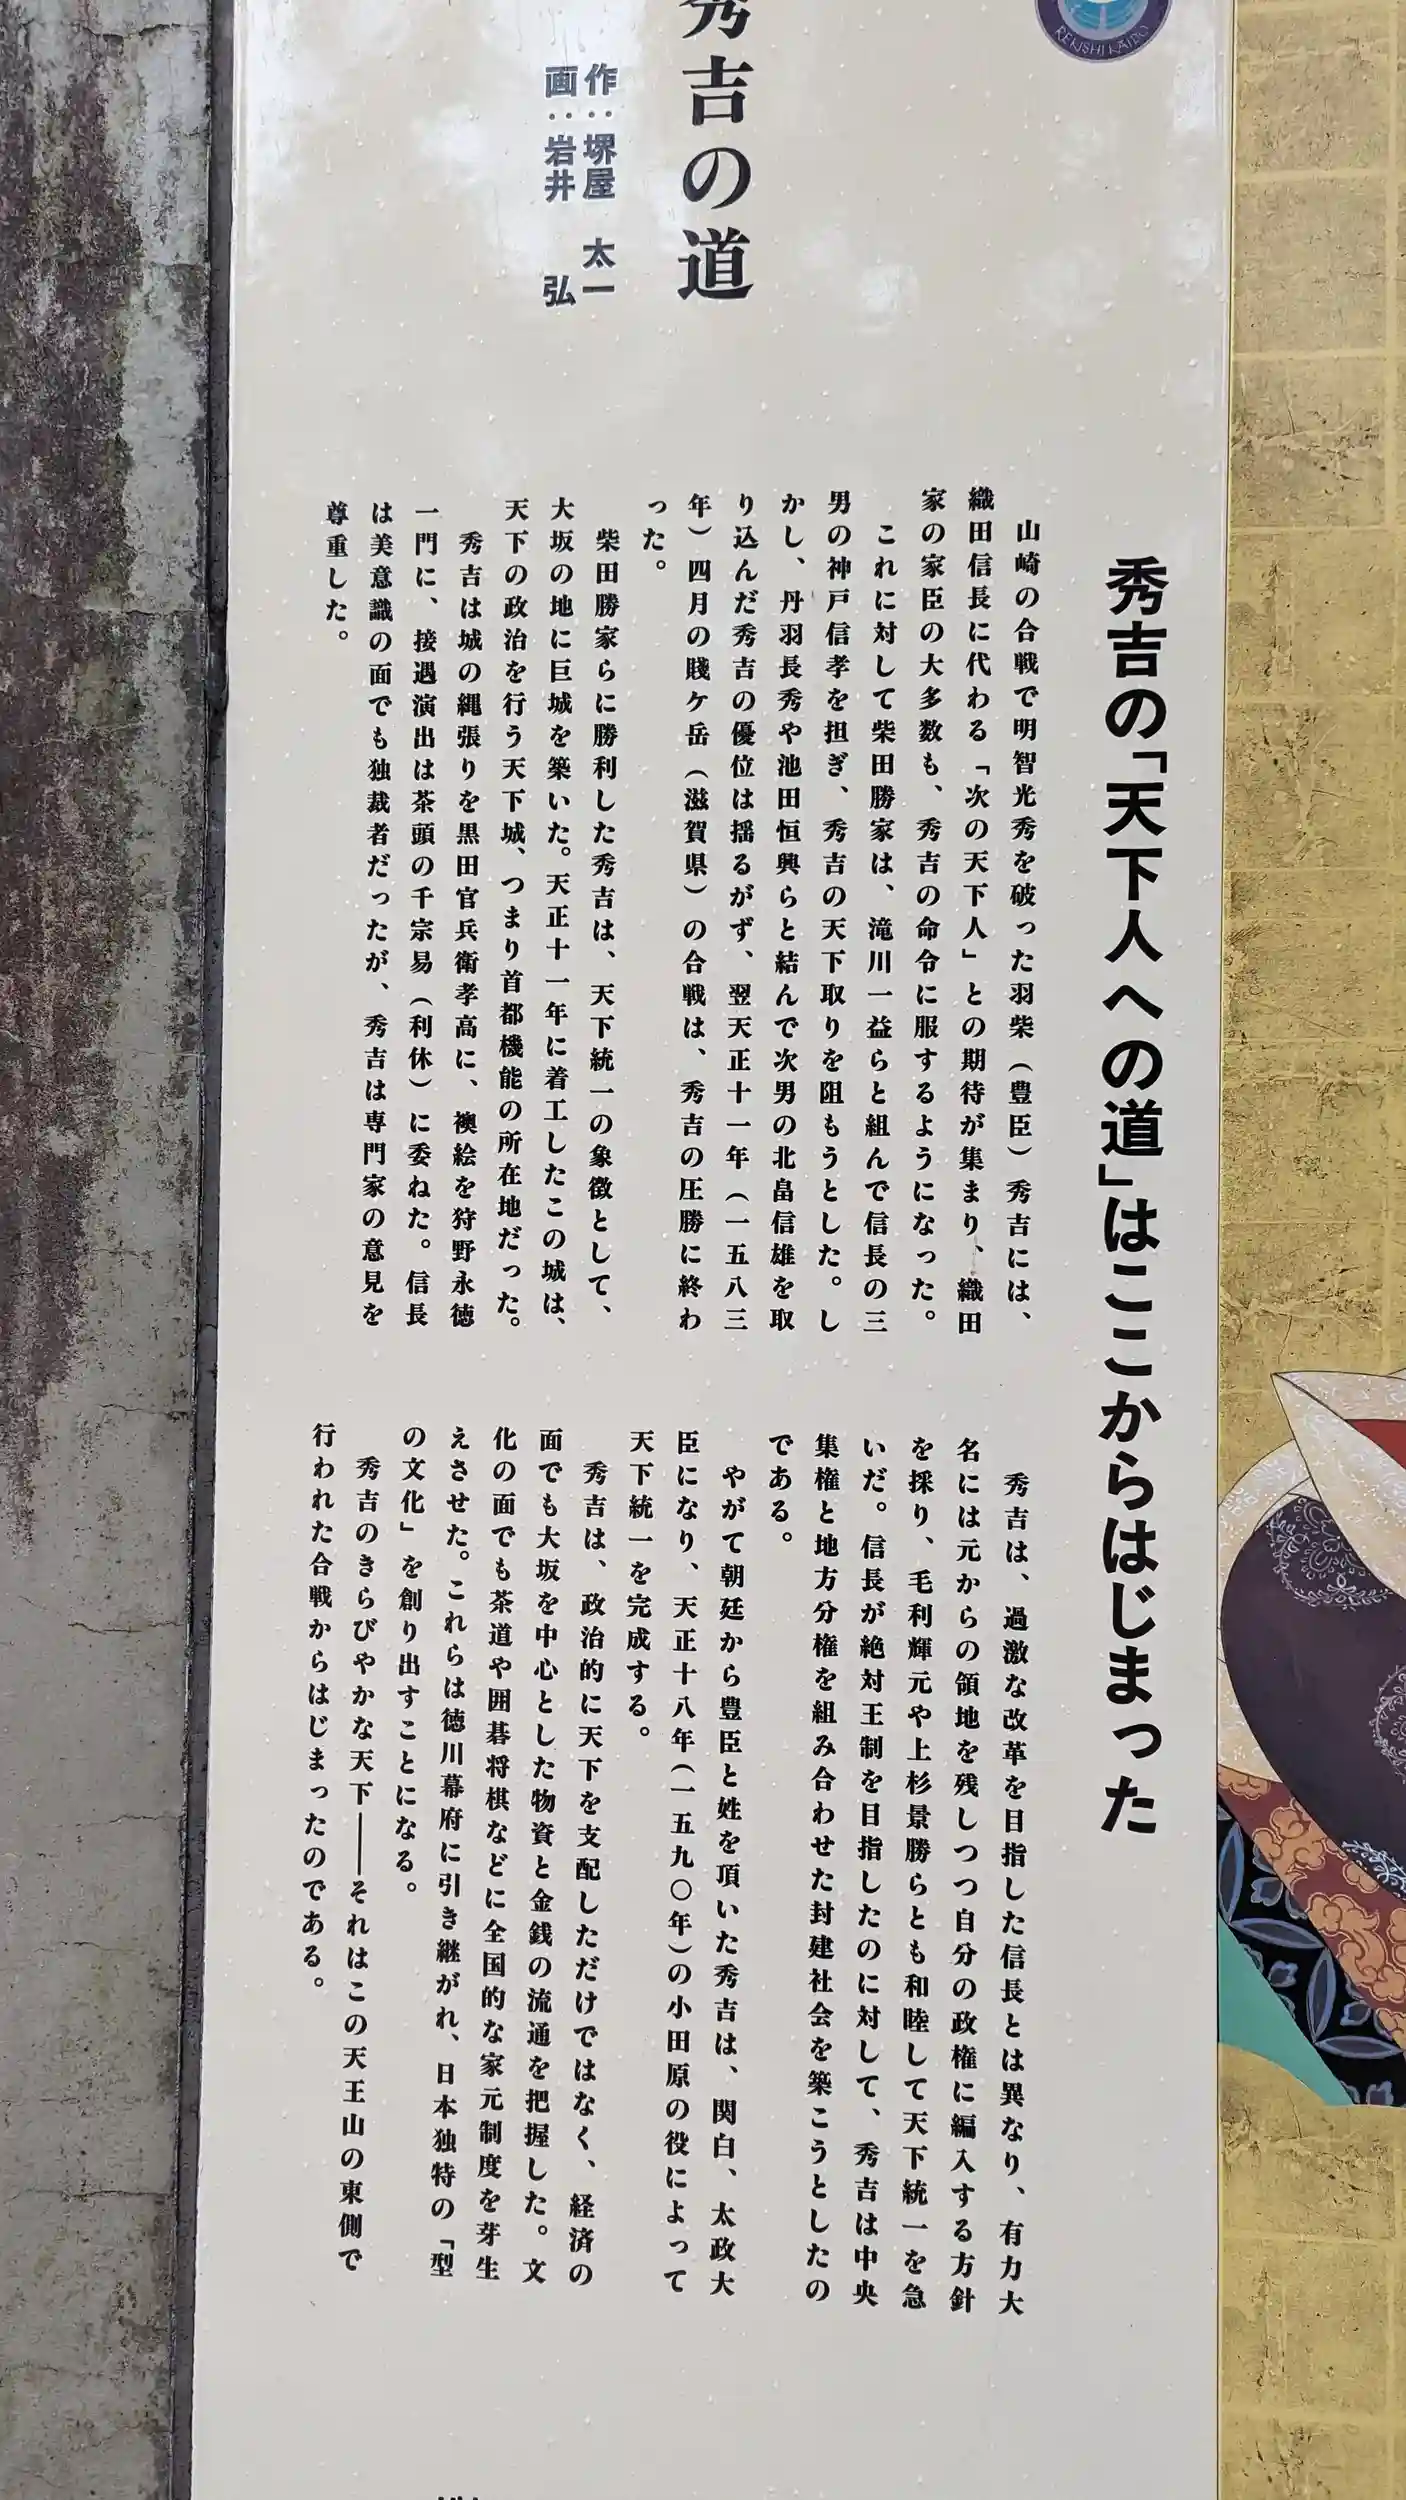 REKISHI KAIDO
秀吉の道
作：堺屋 太一
画：岩井 弘
秀吉の「天下人への道」はここからはじまった
山崎の合戦で明智光秀を破った羽柴（豊臣）秀吉には、
織田信長に代わる「次の天下人」との期待が集まり、織田
家の家臣の大多数も、秀吉の命令に服するようになった。
これに対して柴田勝家は、滝川一益らと組んで信長の三
男の神戸信孝を担ぎ、秀吉の天下取りを阻もうとした。し
かし、丹羽長秀や池田恒興らと結んで次男の北畠信雄を取
り込んだ秀吉の優位は揺るがず、翌天正十一年（一五八三
年）四月の賤ケ岳（滋賀県）の合戦は、秀吉の圧勝に終わ
った。
柴田勝家らに勝利した秀吉は、天下統一の象徴として、
大坂の地に巨城を築いた。天正十一年に着工したこの城は、
天下の政治を行う天下城、つまり首都機能の所在地だった。
秀吉は城の縄張りを黒田官兵衛孝高に、襖絵を狩野永徳
一門に、接遇演出は茶頭の千宗易（利休）に委ねた。信長
は美意識の面でも独裁者だったが、秀吉は専門家の意見を
尊重した。
秀吉は、過激な改革を目指した信長とは異なり、有力大
名には元からの領地を残しつつ自分の政権に編入する方針
を採り、毛利輝元や上杉景勝らとも和睦して天下統一を急
いだ。信長が絶対王制を目指したのに対して、秀吉は中央
集権と地方分権を組み合わせた封建社会を築こうとしたの
である。
やがて朝廷から豊臣と姓を頂いた秀吉は、関白、太政大
臣になり、天正十八年（一五九〇年）の小田原の役によって
天下統一を完成する。
秀吉は、政治的に天下を支配しただけではなく、経済の
面でも大坂を中心とした物資と金銭の流通を把握した。文
化の面でも茶道や囲碁将棋などに全国的な家元制度を芽生
えさせた。これらは徳川幕府に引き継がれ、日本独特の「型
の文化」を創り出すことになる。
秀吉のきらびやかな天下――それはこの天王山の東側で
行われた合戦からはじまったのである。